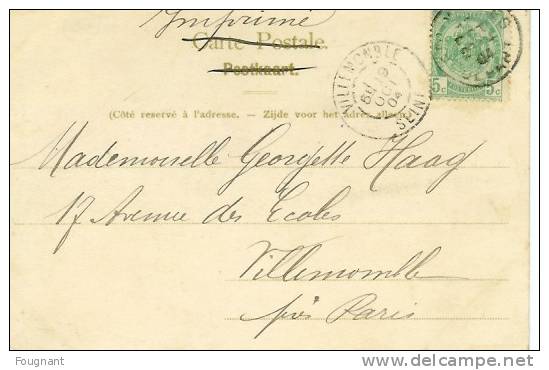 Imprimé
Carte Postale.
Postkaart.
(Côté reservé à l'adresse. - Zijde voor het adres alleen.)
VILLEMOMBLE
SEINE
5c 5c
Mademoiselle Georgette Haag
17 Avenue des Ecoles
Villemomble
près Paris
Fougnant
delcampe.net